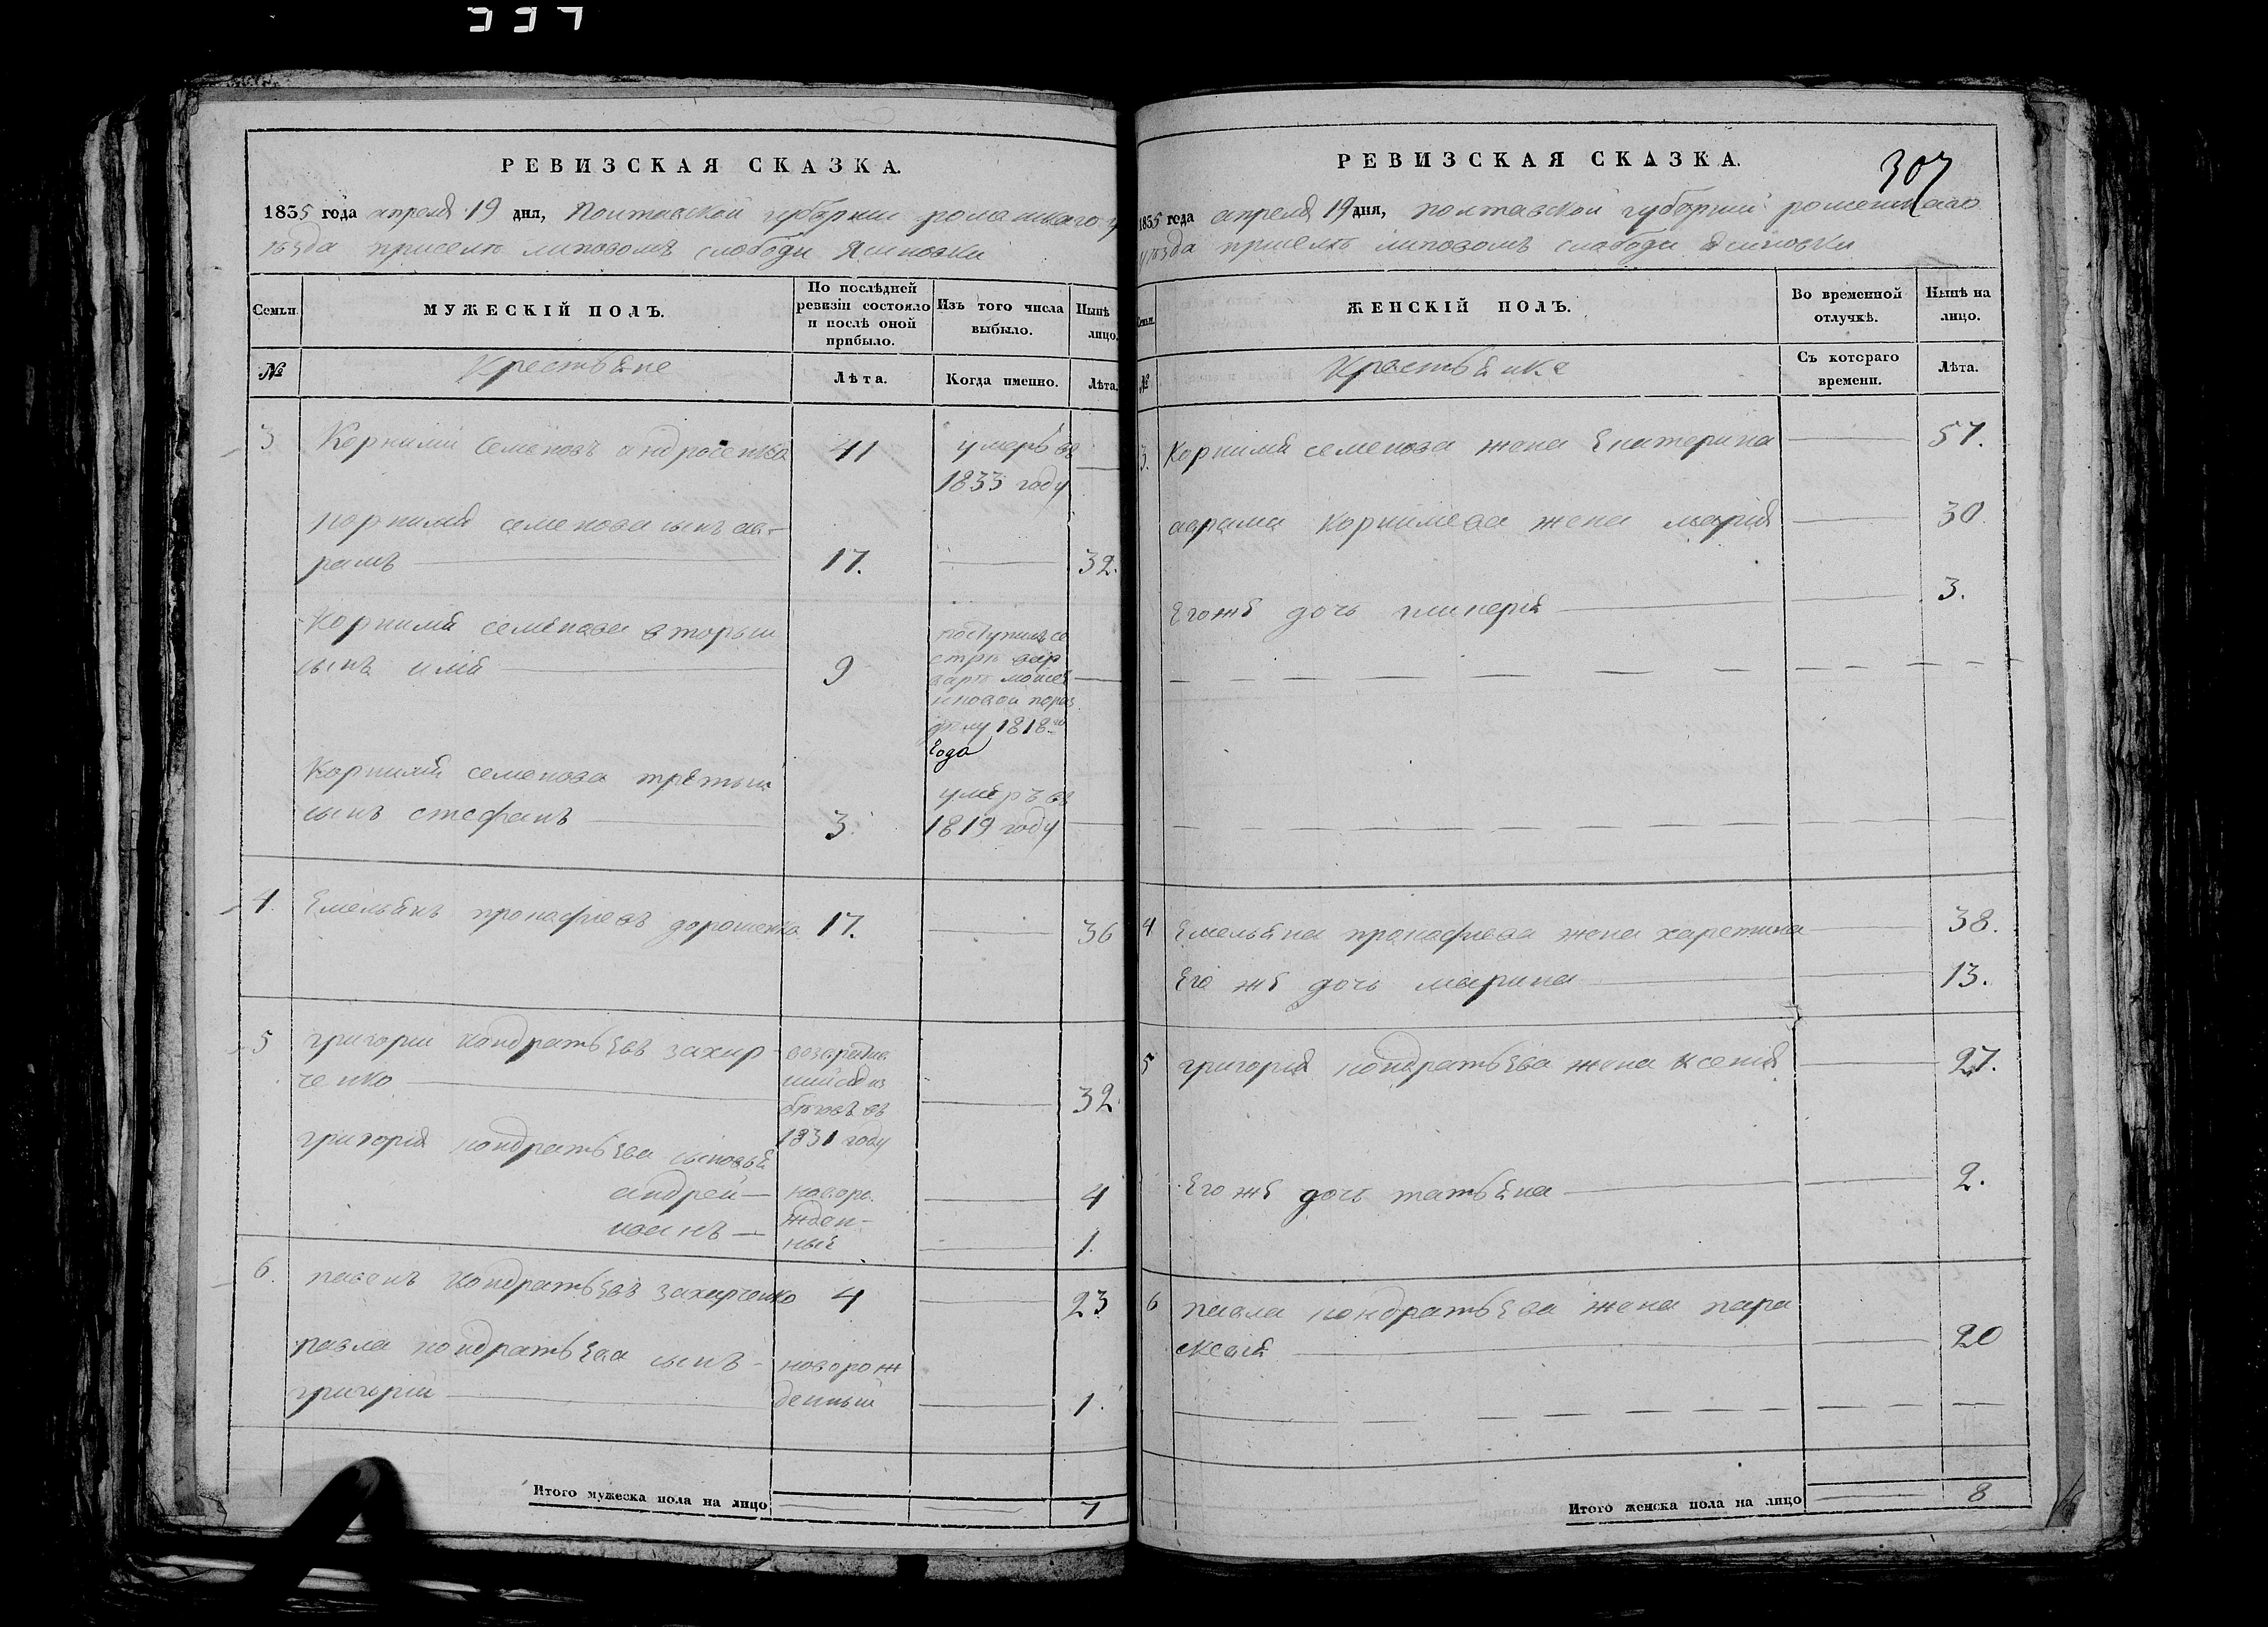 337
РЕВИЗСКАЯ СКАЗКА.
1835 года апреля 19 дня, Полтавской губернии роменскаго у
ѣзда приселк липовомъ слободи Ясиновки
Семьи.
МУЖЕСКІЙ ПОЛЪ.
По послѣдней ревизіи состояло и послѣ оной прибыло.
Изъ того числа выбыло.
Нынѣ лицо.
№
Крестьяне
Лѣта.
Когда именно.
Лѣта.
3 Корнилий Семеновъ андросенко 41 умеръ въ
1833 году
корнилия семенова сынъ ав-
рамъ 17. 32.
Корнилия семенова вторый
сынъ илия 9
поступилъ се
стрѣ вар
варѣ
1818 го
года
Корнилия семенова третьий
сынъ стефанъ 3. умеръ въ
1819 году
4. Емельянъ прокофиевъ дорошенко 17. 36
5 григории кондратьевъ захар
ченко 32
бѣговъ въ
1831 году
григория кондратьева сыновья
андрей 4
иванъ 1.
новоро
жден-
ные
6. павелъ кондратьевъ захарченко 4 23
павла кондратьева сынъ новорож
григорий денный 1.
Итого мужеска пола на лицо 7
РЕВИЗСКАЯ СКАЗКА.
307
1835 года апреля 19 дня, полтавской губернии роменскаго
уѣзда приселк липовомъ слободи Ясиновки
Семьи.
ЖЕНСКІЙ ПОЛЪ.
Во временной отлучкѣ.
Нынѣ на лицо.
№
Крестьянке
Съ котораго времени.
Лѣта.
3. Корнилия семенова жена Екатерина 57.
аврама Корнилиева жена мария 30.
Егоже дочь гликерия 3.
4 Емельяна прокофиева жена харетина 38.
Его же дочь марина 13.
5 григория кондратьева жена ксения 27.
Его же дочь татьяна 2.
6 павла кондратьева жена пара
скевия 20
Итого женска пола на лицо 8